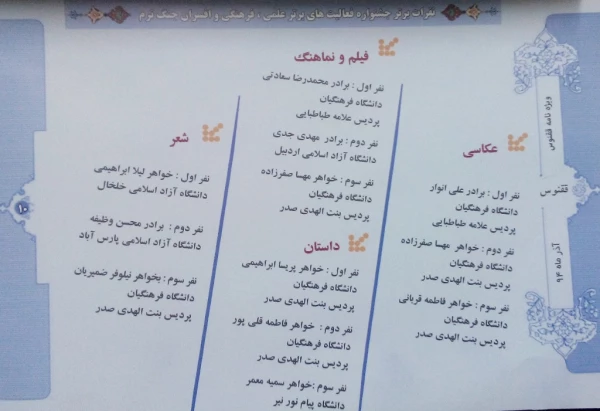 نفرات برتر جشنواره فعالیت های برتر علمی ، فرهنگی و افسران جنگ نرم
ویژه نامه ققنوس
ققنوس
آذر ماه ۹۴
عکاسی
نفر اول : برادر علی انوار
دانشگاه فرهنگیان
پردیس علامه طباطبایی
نفر دوم : خواهر مهسا صفرزاده
دانشگاه فرهنگیان
پردیس بنت الهدی صدر
نفر سوم : خواهر فاطمه قربانی
دانشگاه فرهنگیان
پردیس بنت الهدی صدر
فیلم و نماهنگ
نفر اول : برادر محمدرضا سعادتی
دانشگاه فرهنگیان
پردیس علامه طباطبایی
نفر دوم : برادر مهدی جدی
دانشگاه آزاد اسلامی اردبیل
نفر سوم : خواهر مهسا صفرزاده
دانشگاه فرهنگیان
پردیس بنت الهدی صدر
داستان
نفر اول : خواهر پریسا ابراهیمی
دانشگاه فرهنگیان
پردیس بنت الهدی صدر
نفر دوم : خواهر فاطمه قلی پور
دانشگاه فرهنگیان
پردیس بنت الهدی صدر
نفر سوم : خواهر سمیه معمر
دانشگاه پیام نور نیر
شعر
نفر اول : خواهر لیلا ابراهیمی
دانشگاه آزاد اسلامی خلخال
نفر دوم : برادر محسن وظیفه
دانشگاه آزاد اسلامی پارس آباد
نفر سوم : بخواهر نیلوفر ضمیریان
دانشگاه فرهنگیان
پردیس بنت الهدی صدر
۱۰